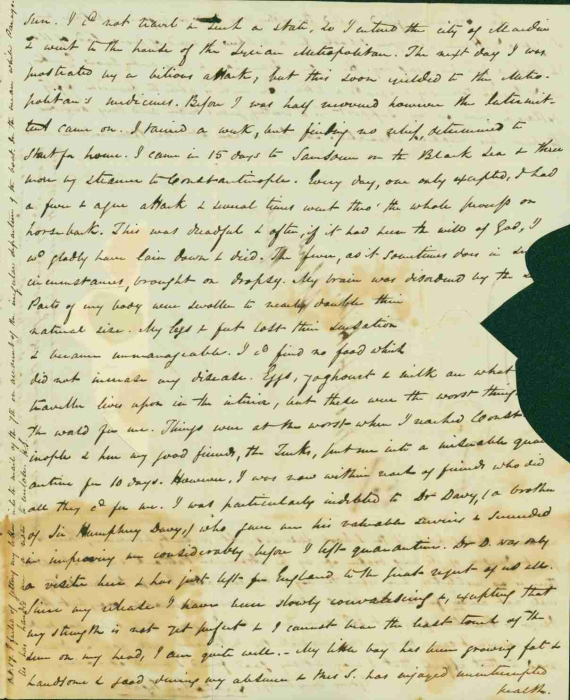 sun. I cd not travel in such a state, so I entered the city of Mardin
& went to the house of the Syrian Metropolitan. The next day I was
prostrated by a bilious attack, but this soon yielded to the Metro-
politan's medicines. Before I was half recovered however the Intermit-
tent came on. I tarried a week, but finding no relief, determined to
start for home. I came in 15 days to Samsoun on the Black Sea & thence
by steamer to Constantinople. Every day, one only excepted, I had
a fever & ague attack & several times went thro' the whole process on
horseback. This was dreadful & often, if it had been the will of God, I
wd gladly have lain down & died. The fever, as it sometimes does in
circumstances, brought on dropsy. My brain was disordered by the
Parts of my body were swollen to nearly double their
natural size. My legs & feet lost their sensation
& became unmanageable. I cd find no food which
did not increase my disease. Eggs, yoghourt & milk are what
traveller lives upon in the interior, but these were the worst things
the world for me. Things were at the worst when I reached Const
inople & here my good friends, the Turks, put me into a miserable quar
antine for 10 days. However, I was now within reach of friends who did
all they cd for me. I was particularly indebted to Dr Davy, (a brother
of Sir Humphrey Davy,) who gave me his valuable services & succeeded
in improving me considerably before I left quarantine. Dr D. was only
a visiter here & has just left for England to the great regret of us all.
Since my release I have been slowly convalescing &, excepting that
my strength is not yet perfect & I cannot bear the least touch of the
sun on my head, I am quite well. -- My little boy has been growing fat &
handsome & good during my absence & Mrs S. has enjoyed uninterrupted
health.